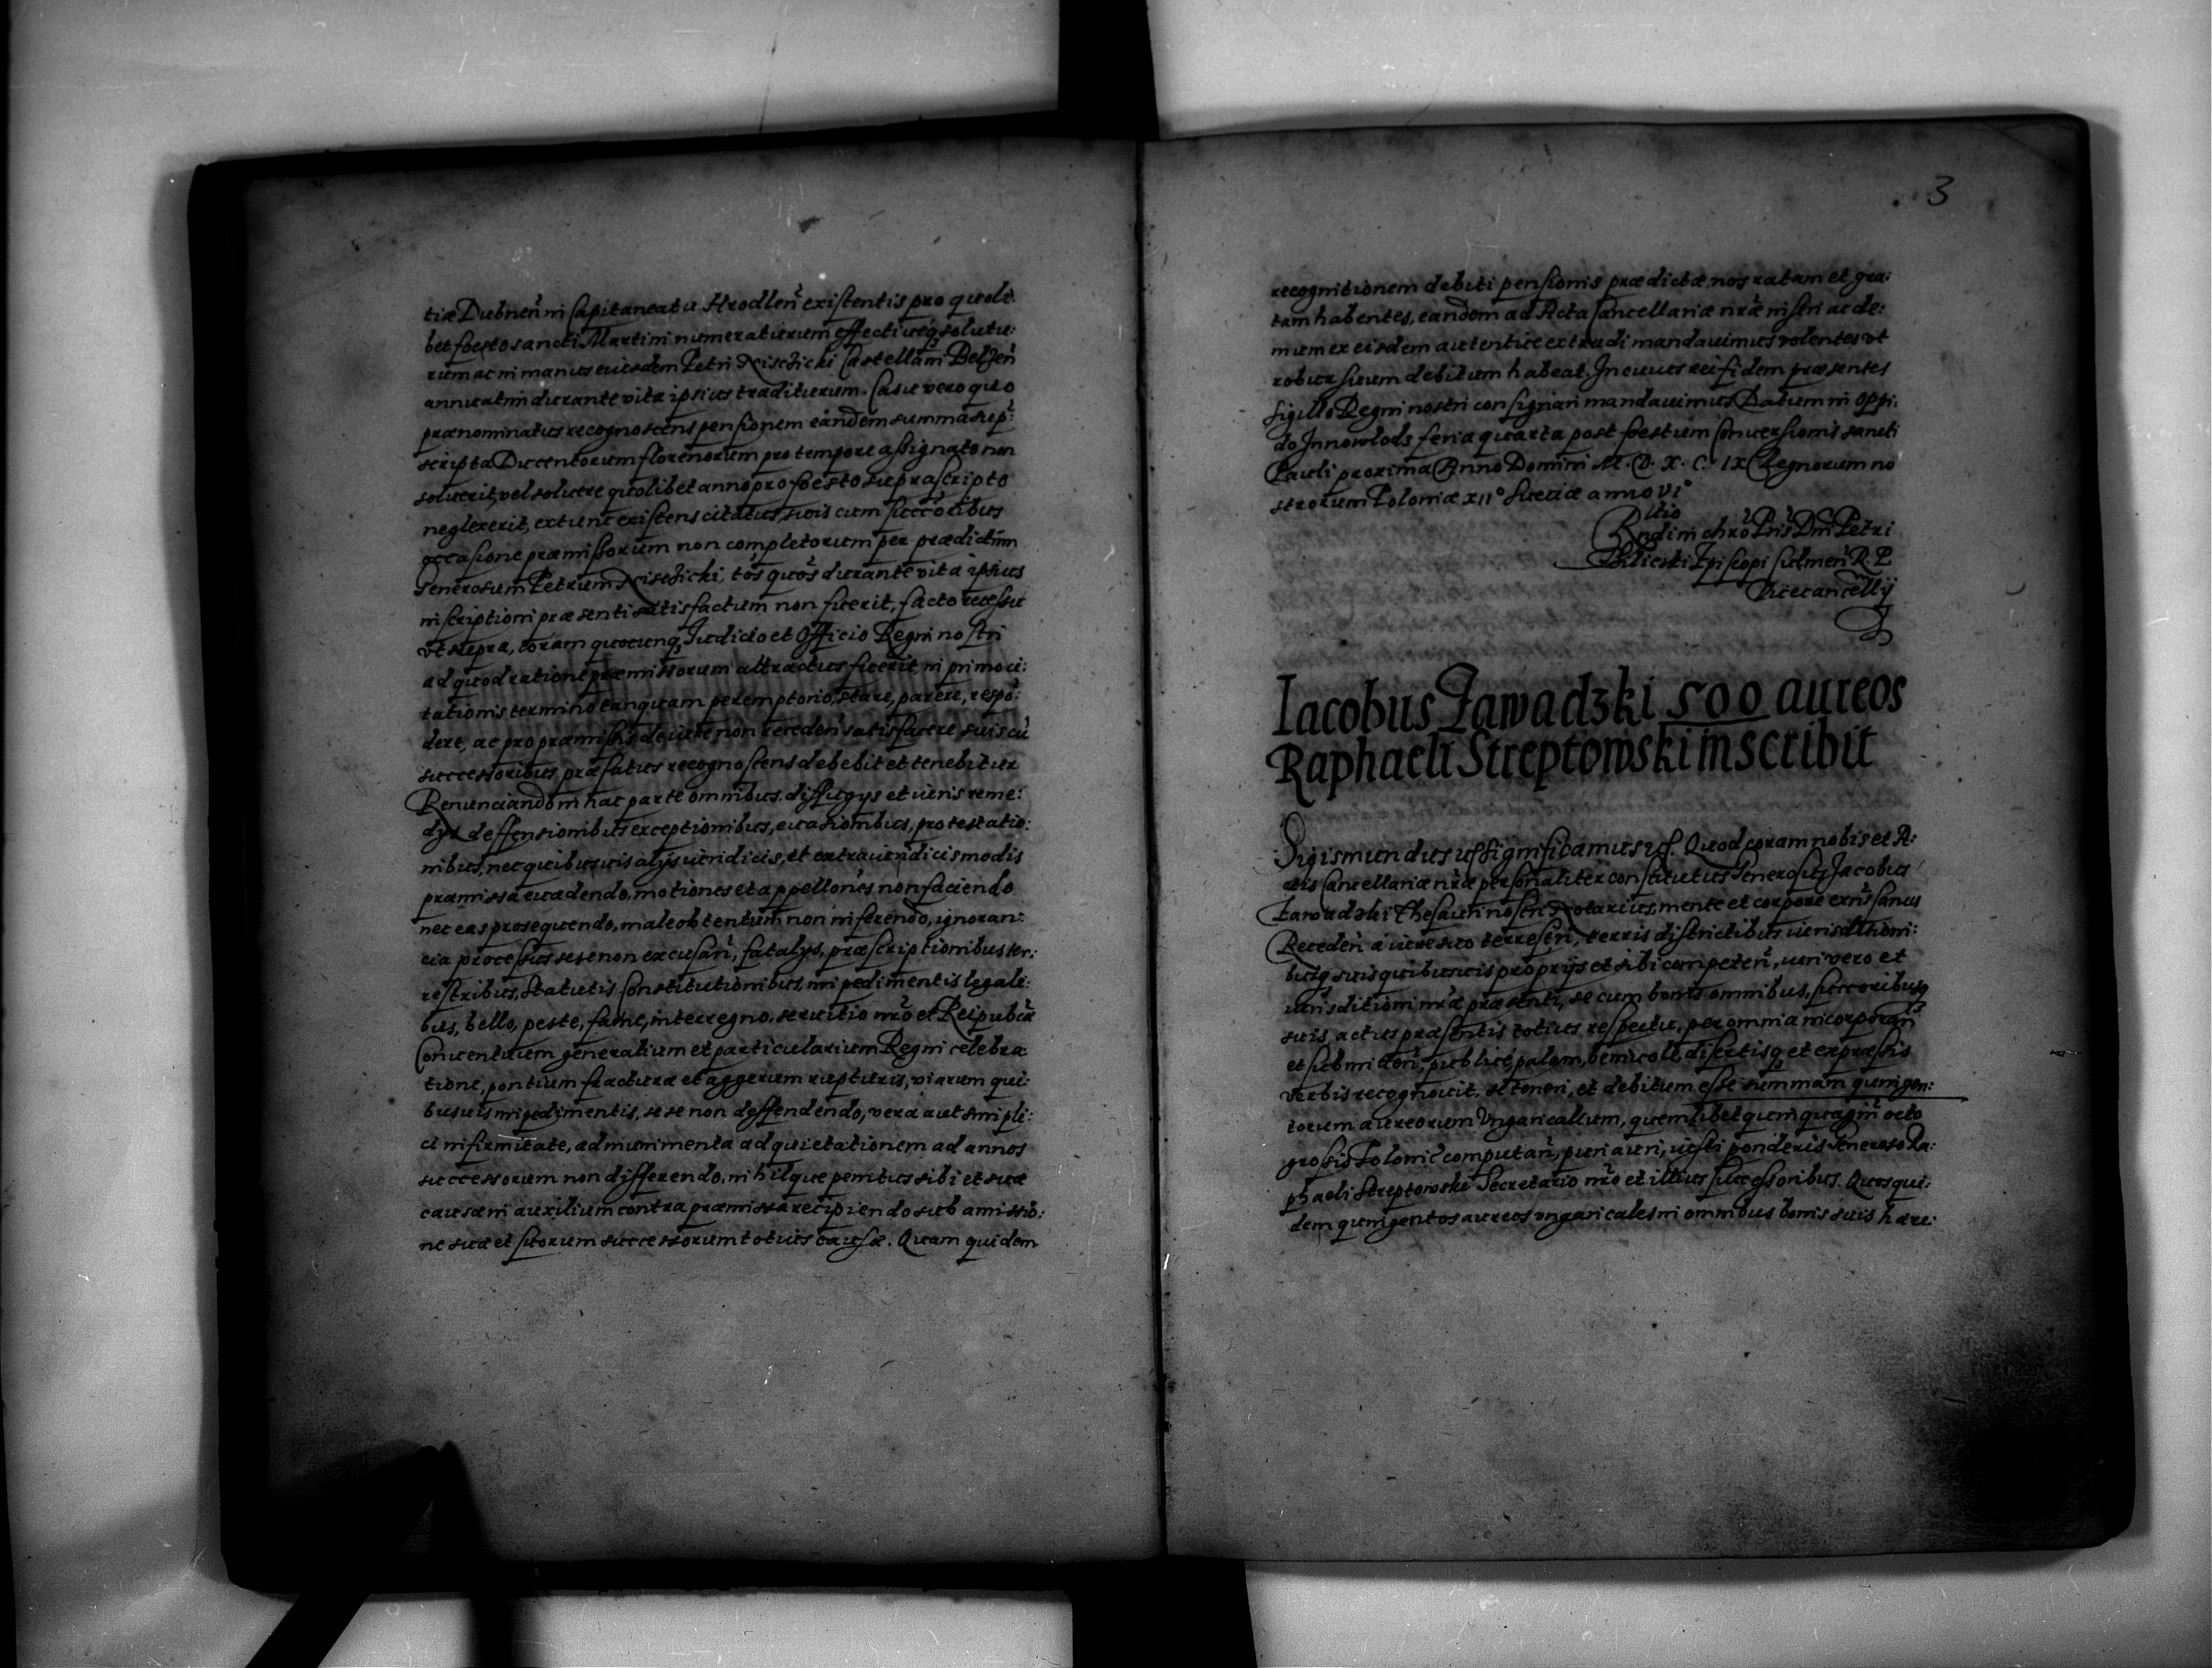 tiæ Dubneñ in Capitaneatu Hrodleñ existentis pro quoli
bet foesto sancti Martini numeraturum effectiueq; solutu:
rum ac in manus eiusdem Petri Castellani Belzeñ
annuatim durante vita ipsius traditurum. Casu vero quo
prænominatus recognoscens pensionem eandem summa sup:
scripta Ducentorum florenorum pro tempore assignato non
soluerit, vel soluere quolibet anno pro foesto suprascripto
neglexerit, extunc existens citatus, suis cum succoribus
occasione præmissorum non completorum per prædictum
Generosum Petrum tos quos durante vita ipsius
inscriptioni præsenti satisfactum non fuerit, facto recessu
vt supra, coram quocunq; Iudicio et Officio Regni nostri
ad quod ratione præmissorum attractus fuerit, in primo ci:
tationis termino tanquam peremptorio, stare, parere, respō:
dere, ac pro præmissis de iure non recedeñ satisfacere suis cū
successoribus, præfatus recognoscens debebit et tenebitur
Renunciando in hac parte omnibus diffugys et iuris reme:
dys deffensionibus exceptionibus, euasionibus, protestatio:
nibus, nec quibusuis alys iuridicis, et extraiuridicis modis
præmissa euadendo, motiones et appellones non faciendo
nec eas prosequendo, male obtentum non inferendo, ignoran:
cia processus sese non excusañ, fatalys, præscriptionibus ter:
restribus, statutis Constitutionibus, impedimentis legali:
bus, bello, peste, fame, interregno, seruitio nrō et Reipubcæ
Conuentuum generalium et particularium Regni celebra
tione, pontium fractura et aggerum rupturis, viarum qui:
busuis impedimentis, sese non deffendendo, vera aut simpli:
ci infirmitate, ad munimenta ad quietationem ad annos
successorum non differendo, nihilque penitus sibi et suæ
causæ in auxilium contra præmissa recipiendo sub amissio:
ne suæ et suorum successorum totius causæ. Quam quidem
3
recognitionem debiti pensionis prædictæ, nos ratam et gra:
tam habentes, eandem ad Acta Cancellariæ nræ inseri ac de:
mum ex eisdem autentice extradi mandauimus volentes vt
robur suum debitum habeat. In cuius rei fidem præsentes
sigillo Regni nostri consignari mandauimus Datum in oppi:
do Innowlods feria quarta post foestum Conuersionis sancti
Pauli proxima Anno Domini M. D. X. C. IX Regnorum no
strorum Poloniæ XII° Sueciæ anno VI°
Rndi in chrō Pris Dni Petri
Tilicski Episcopi Culmeñ R. P.
Vicecancellij
Iacobus Zawadzki 500 aureos
Raphaeli Streptowski inscribit
Sigismundus usz Significamus usz. Quod coram nobis et A:
ctis Cancellariæ nræ personaliter constitutus Generosus Jacobus
Zawadzki Thesauri nostri Notarius, mente et corpore existens sanus
Recedeñ a iure suo terrestri, terris districtibus iurisditioni:
busq; suis quibusuis proprijs et sibi competeñ, iuri vero et
iurisditioni nræ præsenti, se cum bonis omnibus, succoribusq;
suis, actus præsentis totius respectu, per omnia incorporañ
et submitteñ, publice, palam, disertisq; et expressis
verbis recognouit, se teneri, et debitum esse summam quingen:
torum aureorum Vngaricalium, quemlibet quinquaginta octo
grossis Polonic computañ, puri auri, iusti ponderis Generoso Ra:
phaeli Streptowski Secretario nrō et illius successoribus. Quos qui:
dem quingentos aureos vngaricales in omnibus bonis suis hære: